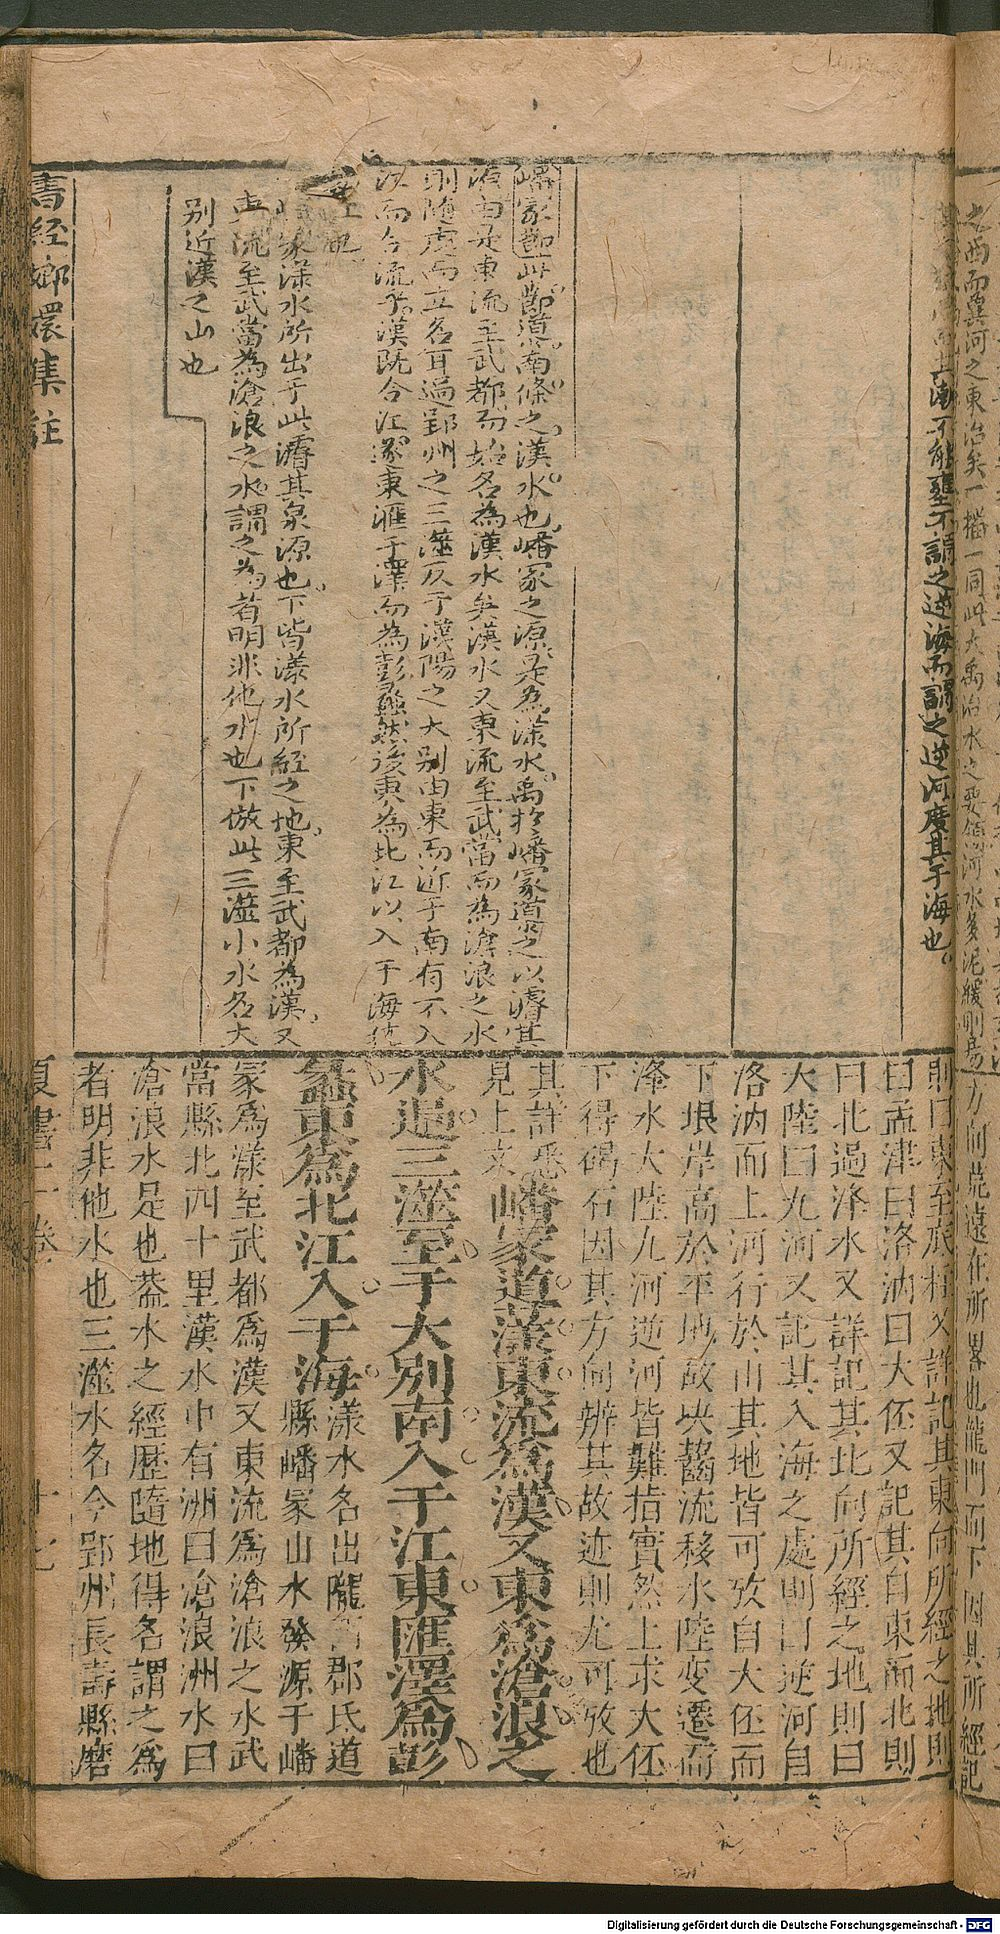 不能壅不謂之逆海而謂之逆河廣其于海也
嶓冢節此節道南條之漢水也嶓冢之源是為漾水禹於嶓冢導之以濬其
源由是東流至武都而始名為漢水矣漢水又東流至武當而為滄浪之水
則隨處而立名耳過郢州之三澨及于漢陽之大别由東而近于南有不入
江而合流乎漢既合江遂東滙于澤而為彭蠡然後東為北江以入于海
冢漾水所出于此濬其泉源也下皆漾水所經之地東至武都為漢又
東流至武當為滄浪之水謂之為者明非他水也下倣此三澨小水名大
别近漢之山也
則曰東至底柱又詳記其東向所經之地則
曰孟津曰洛汭曰大伾又記其自東而北則
曰北過洚水又詳記其北向所經之地則曰
大陸曰九河又記其入海之處則曰逆河自
洛汭而上河行於山其地皆可攷自大伾而
下垠岸高於平地故决齧流移水陸变遷而
洚水大陸九河逆河皆難指實然上求大伾
下得碣石因其方向辨其故迹則尤可攷也
其詳悉
見上文
嶓冢導漾東流為漢又東為滄浪之
水過三澨至于大別南入于江東匯澤為彭
蠡東為北江入于海
漾水名出隴西郡氐道
縣嶓冢山水發源于嶓
冢爲漾至武都爲漢又東流爲滄浪之水武
當縣北四十里漢水中有洲曰滄浪洲水曰
滄浪水是也葢水之經歷隨地得名謂之爲
者明非他水也三澨水名今郢州長壽縣磨
書經嫏嬛集註
夏書二卷
十七
Digitalisierung gefördert durch die Deutsche Forschungsgemeinschaft - DFG